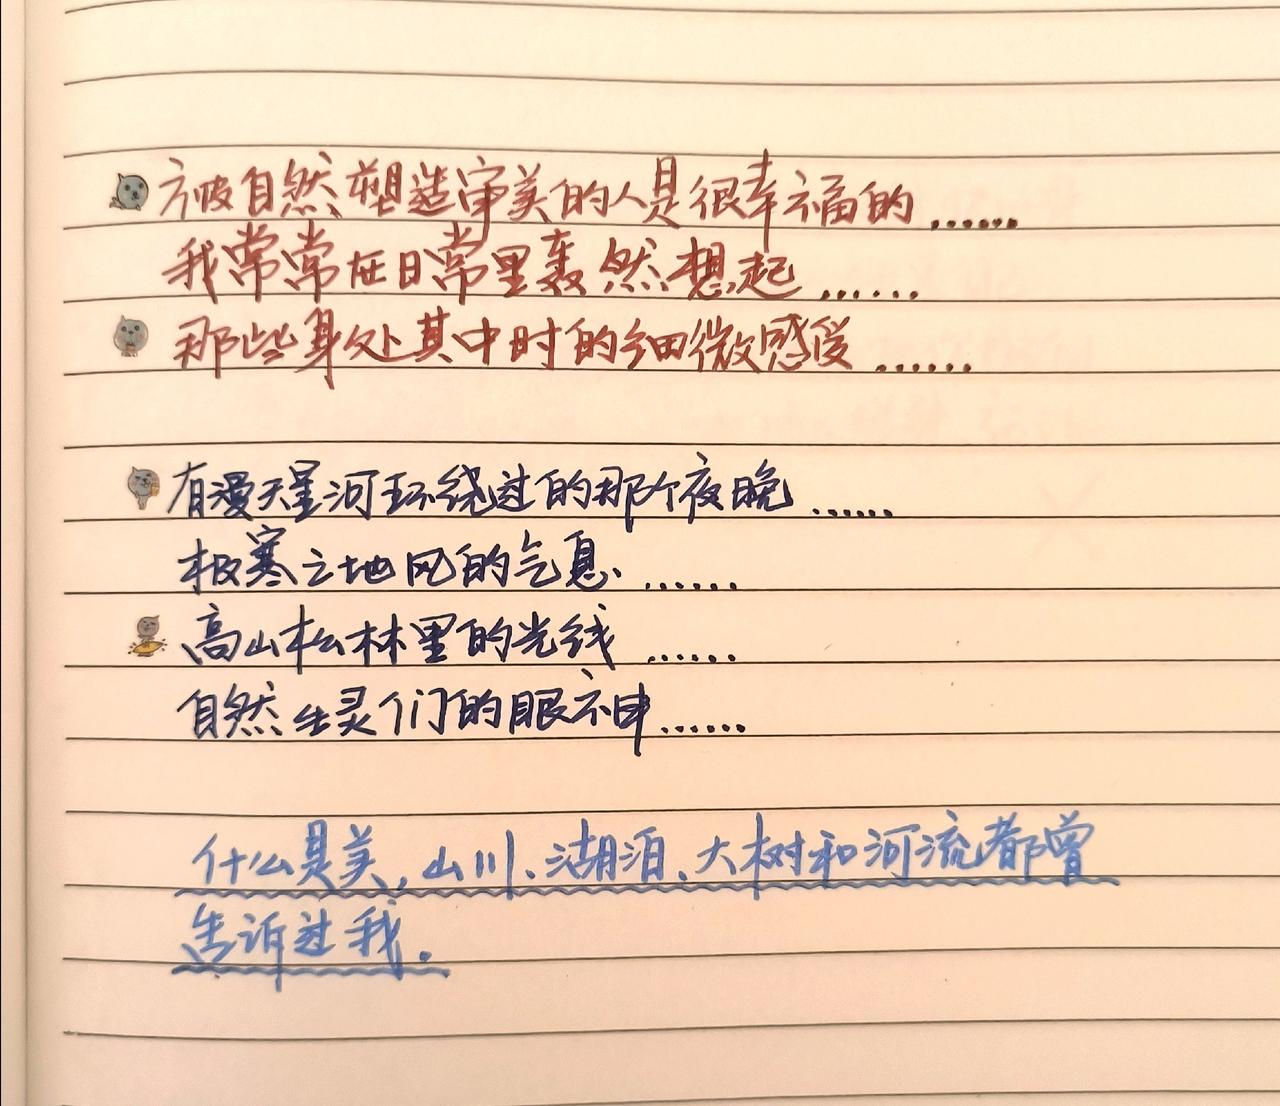 被自然塑造审美的人是很幸福的......
我常常在日常里轰然想起......
那些身处其中时的细微感受......
有漫天星河环绕过的那个夜晚......
极寒之地风的气息......
高山松林里的光线......
自然生灵们的眼神......
什么是美,山川、湖泊、大树和河流都曾
告诉过我.